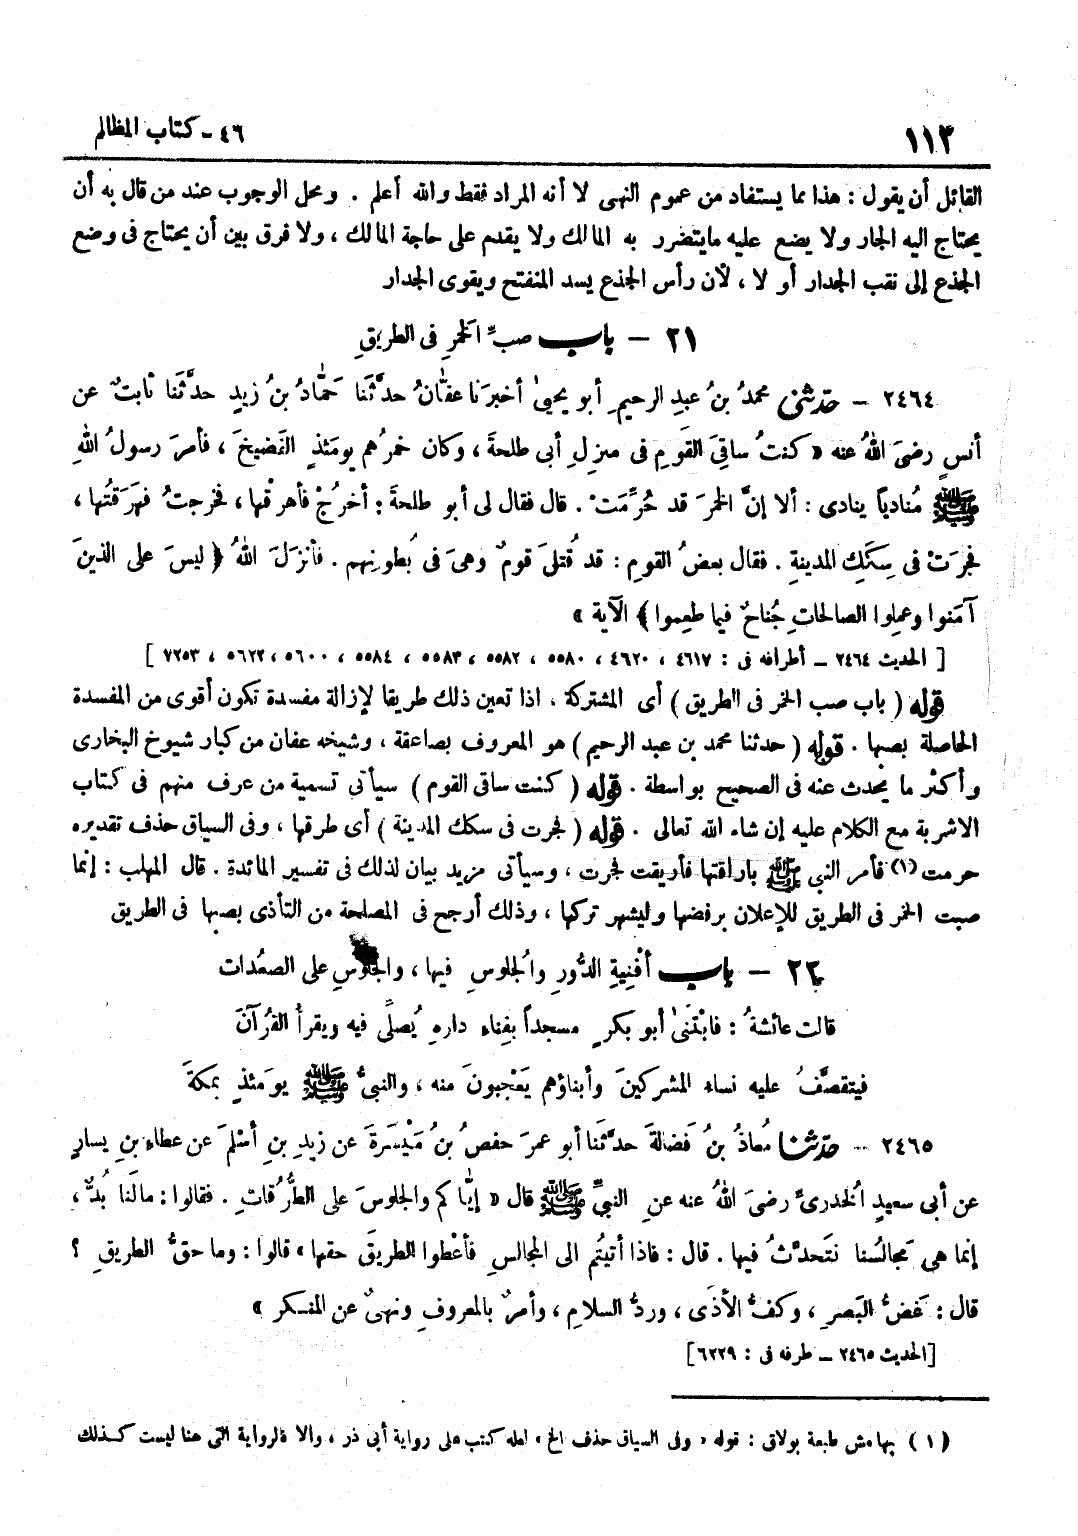 ١١٢
٤٦ - كتاب المظالم
القائل أن يقول : هذا مما يستفاد من عموم النهى لا أنه المراد فقط والله أعلم . ومحل الوجوب عند من قال به أن
يحتاج اليه الجار ولا يضع عليه مايتضرر به المالك ولا يقدم على حاجة المالك ، ولا فرق بين أن يحتاج فى وضع
الجذع إلى نقب الجدار أو لا ، لأن رأس الجذع يسد المنفتح ويقوى الجدار
٢١ - باب صبِّ الخمرِ فى الطريقِ
٢٤٦٤ - حدثنى محمدُ بنُ عبدِ الرحيمِ أبو يحيىٰ أخبرَنا عفّانُ حدَّثَنا حمّادُ بنُ زيدٍ حدَّثَنا ثابتٌ عن
أنسٍ رضىَ اللهُ عنه « كنتُ ساقِىَ القَومِ فى منزلِ أبى طلحةَ ، وكان خمرُهم يومَئذٍ الفَضيخَ ، فأمرَ رسولُ اللهِ
ﷺ مُنادياً ينادى : ألا إنَّ الخمرَ قد حُرِّمَتْ . قال فقال لى أبو طلحةَ : أخرُجْ فأهرِقْها ، فخرجتُ فهرَقتُها ،
فجرَتْ فى سِكَكِ المدينةِ . فقال بعضُ القومِ : قد قُتلَ قومٌ وهىَ فى بُطونِهم . فأنزلَ اللهُ ﴿ ليسَ على الذينَ
آمَنوا وعملِوا الصالحاتِ جُناحٌ فيما طعِموا ﴾ الآية »
[ الحديث ٢٤٦٤ - أطرافه فى : ٤٦١٧ ، ٤٦٢٠ ، ٥٥٨٠ ، ٥٥٨٢ ، ٥٥٨٣ ، ٥٥٨٤ ، ٥٦٠٠ ، ٥٦٢٢ ، ٧٢٥٣ ]
قوله ( باب صب الخمر فى الطريق ) أى المشتركة ، اذا تعين ذلك طريقا لإزالة مفسدة تكون أقوى من المفسدة
الحاصلة بصبها . قوله ( حدثنا محمد بن عبد الرحيم ) هو المعروف بصاعقة ، وشيخه عفان من كبار شيوخ البخارى
وأكثر ما يحدث عنه فى الصحيح بواسطة . قوله ( كنت ساقى القوم ) سيأتى تسمية من عرف منهم فى كتاب
الاشربة مع الكلام عليه إن شاء الله تعالى . قوله ( فجرت فى سكك المدينة ) أى طرقها ، وفى السياق حذف تقديره
حرمت (١) فأمر النبى ﷺ باراقتها فأريقت فجرت ، وسيأتى مزيد بيان لذلك فى تفسير المائدة . قال المهلب : إنما
صبت الخمر فى الطريق للإعلان برفضها وليشهر تركها ، وذلك أرجح فى المصلحة من التأذى بصبها فى الطريق
٢٢ - باب أفْنِيةِ الدُّورِ والْجلوسِ فيها ، والجلوسِ على الصعُدات
قالت عائشةُ : فابْتَنىٰ أبو بكرٍ مسجداً بفِناءِ دارهِ يُصلِّى فيه ويقرأُ القُرآنَ
فيتقصَّفُ عليه نساء المشركينَ وأبناؤهم يَعْجبونَ منه ، والنبىُّ ﷺ يومَئذٍ بمكةَ
٢٤٦٥ - حدثنا مُعاذُ بنُ فَضالةَ حدَّثَنا أبو عمرَ حفصُ بنُ مَيْسَرةَ عن زيدِ بنِ أسْلمَ عن عطاءِ بنِ يسارٍ
عن أبى سعيدٍ الْخدرىِّ رضىَ اللهُ عنه عنِ النبىِّ ﷺ قال « إيّاكم والجلوسَ على الطُّرُقاتِ . فقالوا : مالَنا بُدٌّ ،
إنما هى مَجالسُنا نَتحدَّثُ فيها . قال : فاذا أتيتُم الى المجالسِ فأعْطوا الطريقَ حقها » قالوا : وما حقُّ الطريقِ ؟
قال : غَضُّ البَصرِ ، وكفُّ الأذَى ، وردُّ السلامِ ، وأمرٌ بالمعروفِ ونهىٌ عن المنكر »
[الحديث ٢٤٦٥ - طرفه فى : ٦٢٢٩]
(١) بهامش طبعة بولاق : قوله « وفى السياق حذف الخ » لعله كتب على رواية أبى ذر ، والا فالرواية التى هنا ليست كذلك